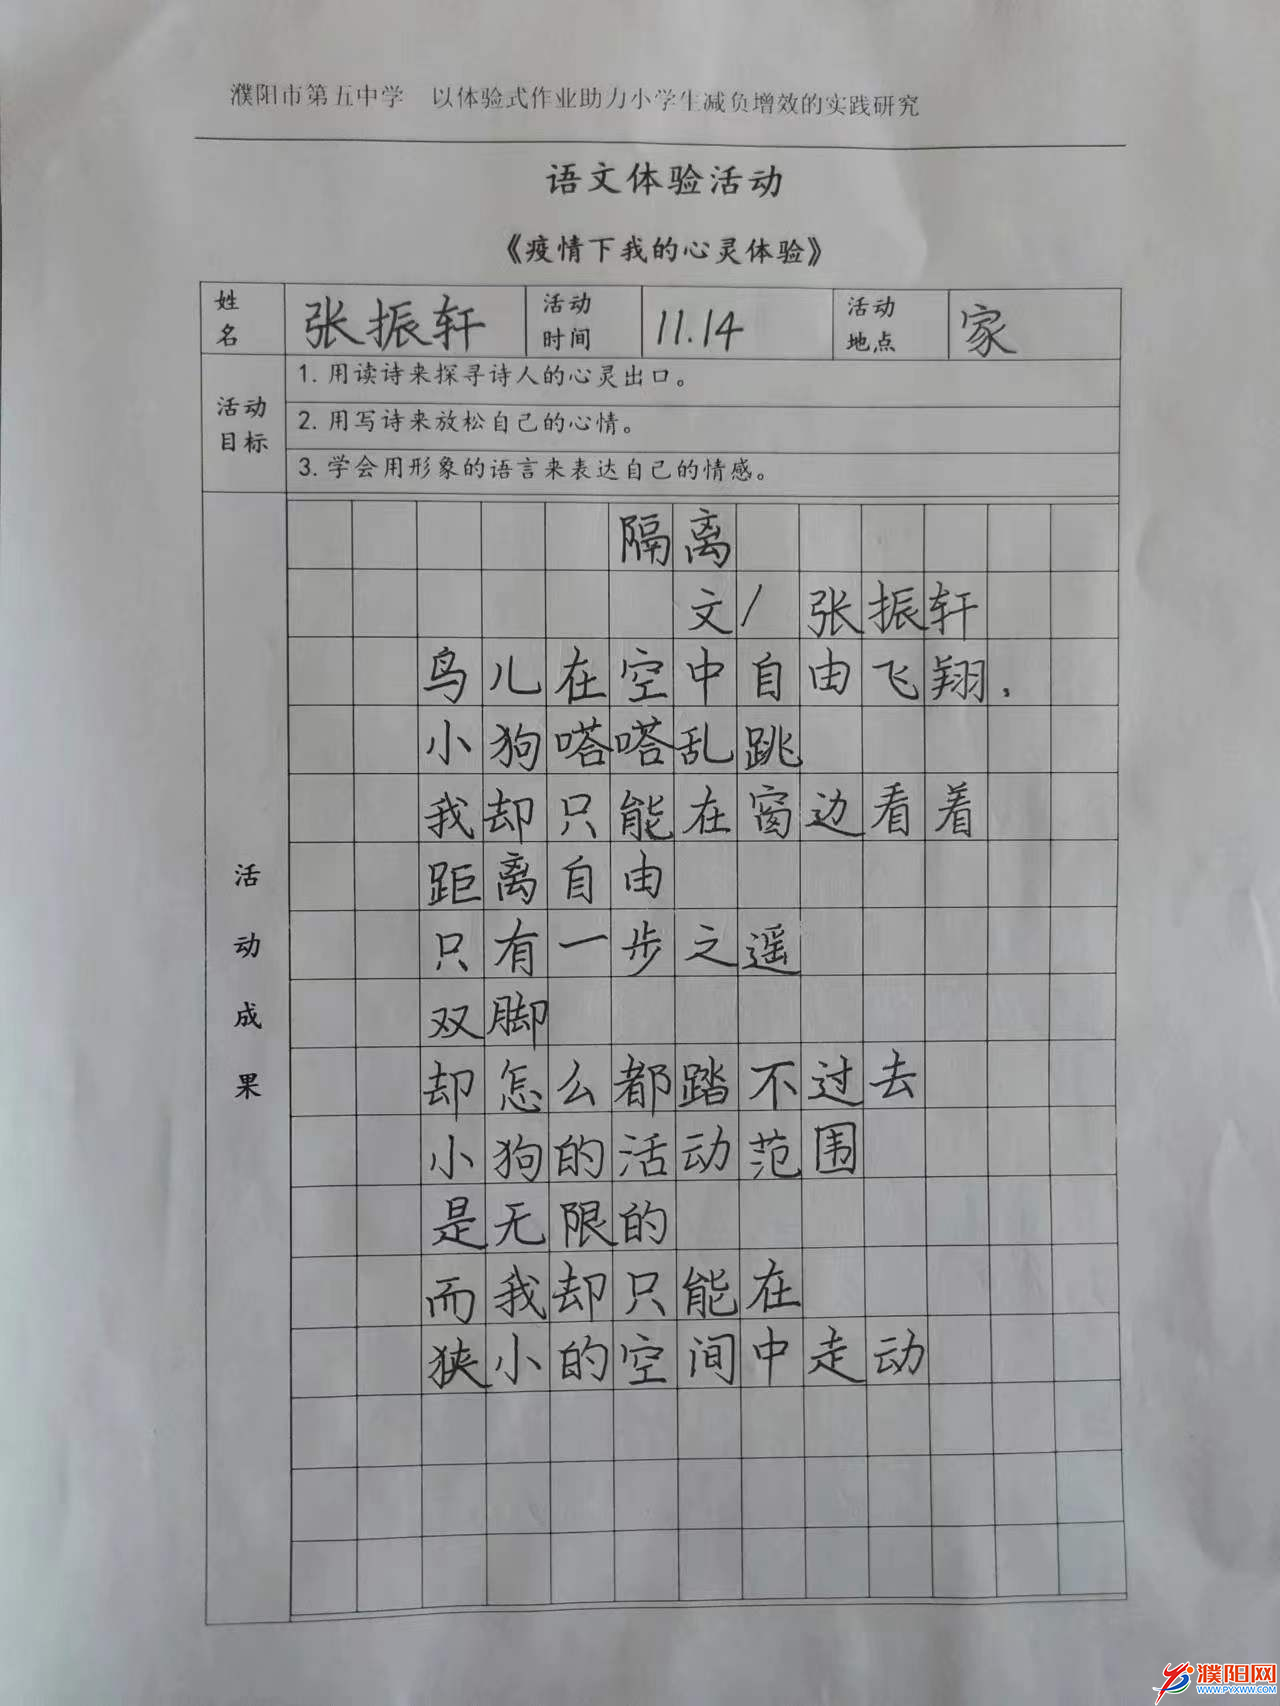 濮阳市第五中学 以体验式作业助力小学生减负增效的实践研究
语文体验活动
《疫情下我的心灵体验》
姓名 张振轩 活动时间 11.14 活动地点 家
活动目标
1. 用读诗来探寻诗人的心灵出口。
2. 用写诗来放松自己的心情。
3. 学会用形象的语言来表达自己的情感。
活动成果
隔离
文/ 张振轩
鸟儿在空中自由飞翔，
小狗嗒嗒乱跳
我却只能在窗边看着
距离自由
只有一步之遥
双脚
却怎么都踏不过去
小狗的活动范围
是无限的
而我却只能在
狭小的空间中走动
濮阳网
www.pyxww.com